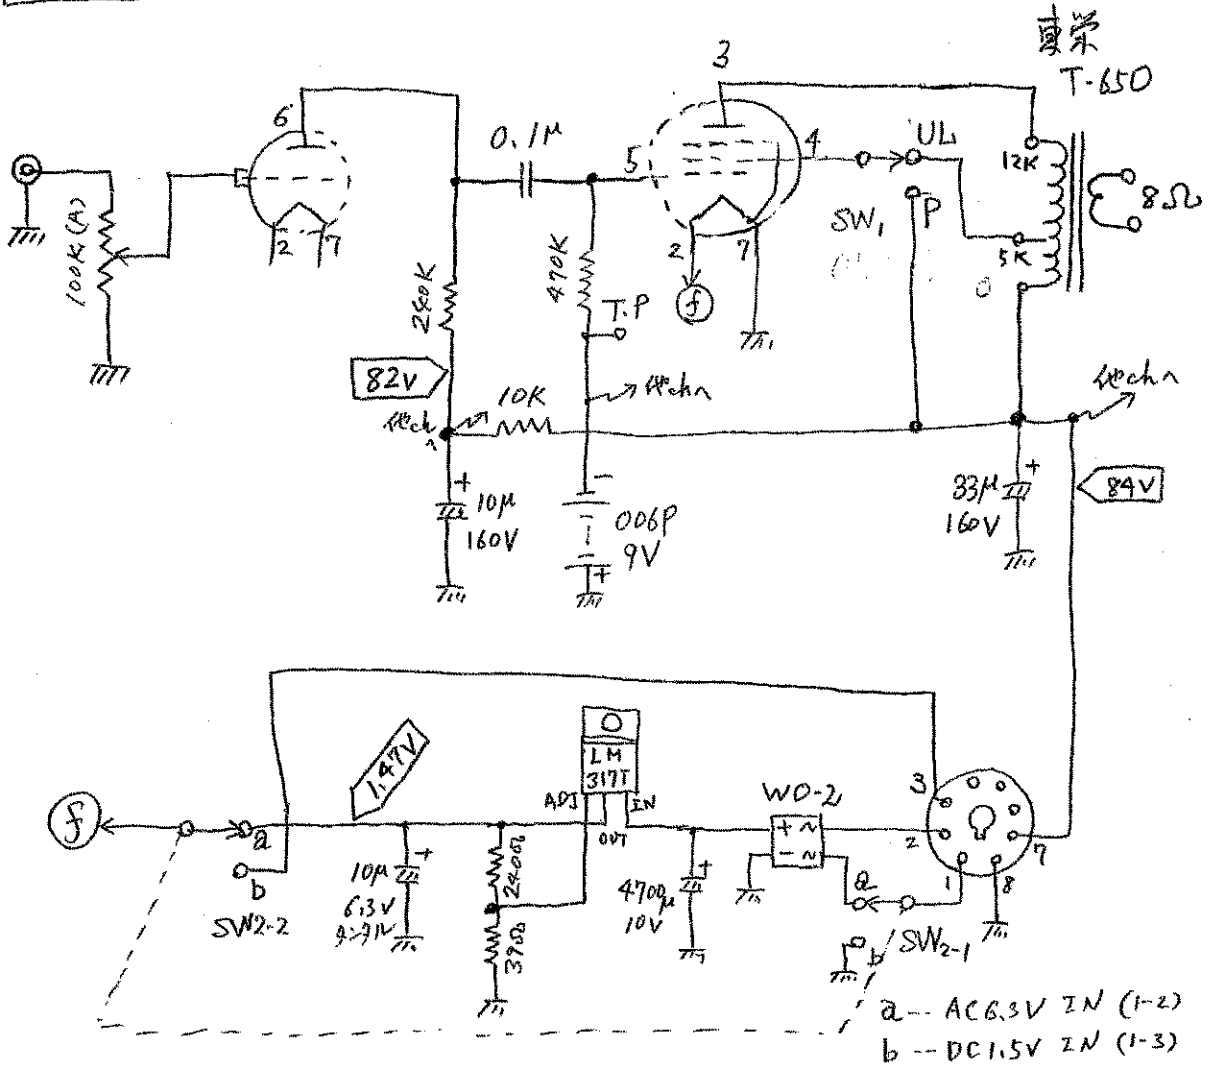 東栄
T-650
3
6
0.1μ
5
4
UL
12K
8Ω
100K(A)
2
7
SW1
P
5K
0
2
7
240K
470K
f
T.P
82V
他chへ
10K
他chへ
他chへ
+
10μ
160V
-
006P
9V
+
+
33μ
160V
84V
1.47V
LM
317T
ADJ
IN
OUT
WO-2
3
f
a
+ ~
- ~
2
7
b
SW2-2
+
10μ
6.3V
タンタル
240Ω
390Ω
+
4700μ
10V
a
1
8
b
SW2-1
a -- AC6.3V IN (1-2)
b -- DC1.5V IN (1-3)